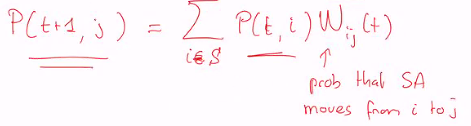 P(t+1, j) = ∑ P(t, i) W_ij (t)
i∈S
↑
prob that SA
moves from i to j